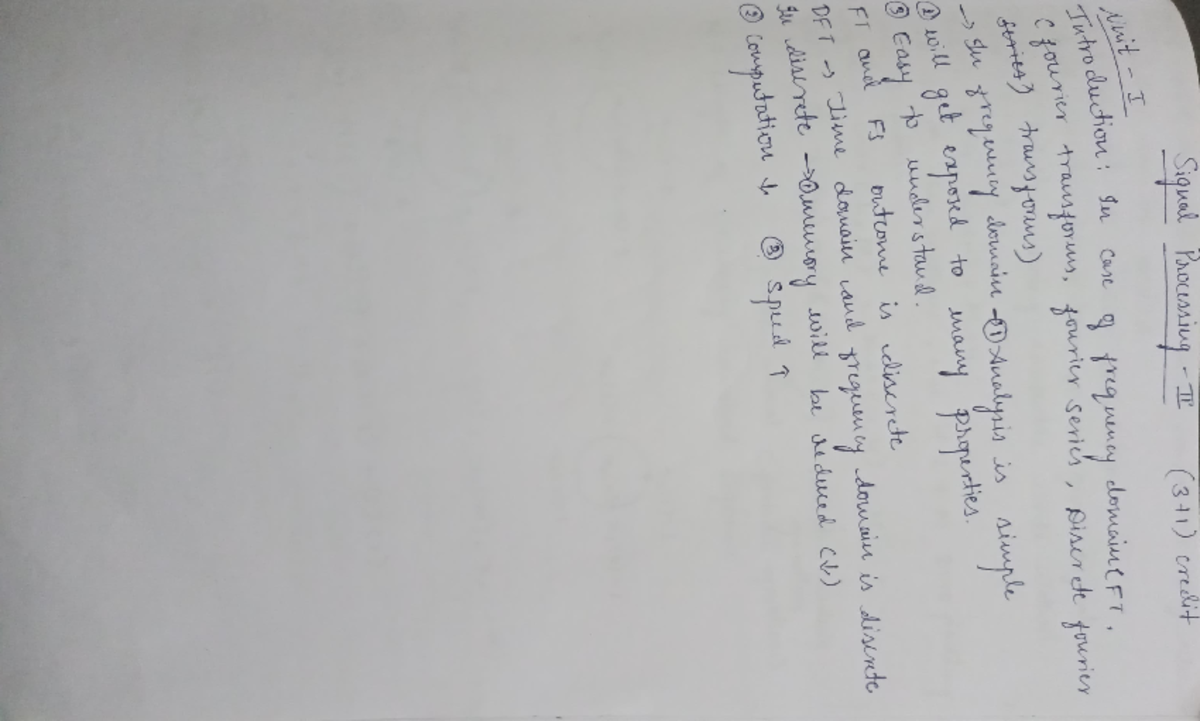 Signal Processing - II (3+1) credit
Unit - I
Introduction: In case of frequency domain (FT,
(fourier transforms, fourier series, Discrete fourier
series) transforms)
→ In frequency domain - ① Analysis is simple
② will get exposed to many properties.
③ Easy to understand.
FT and FS outcome is discrete
DFT → Time domain and frequency domain is discrete
In discrete → ① memory will be reduced (↓)
② computation ↓ ③ Speed ↑